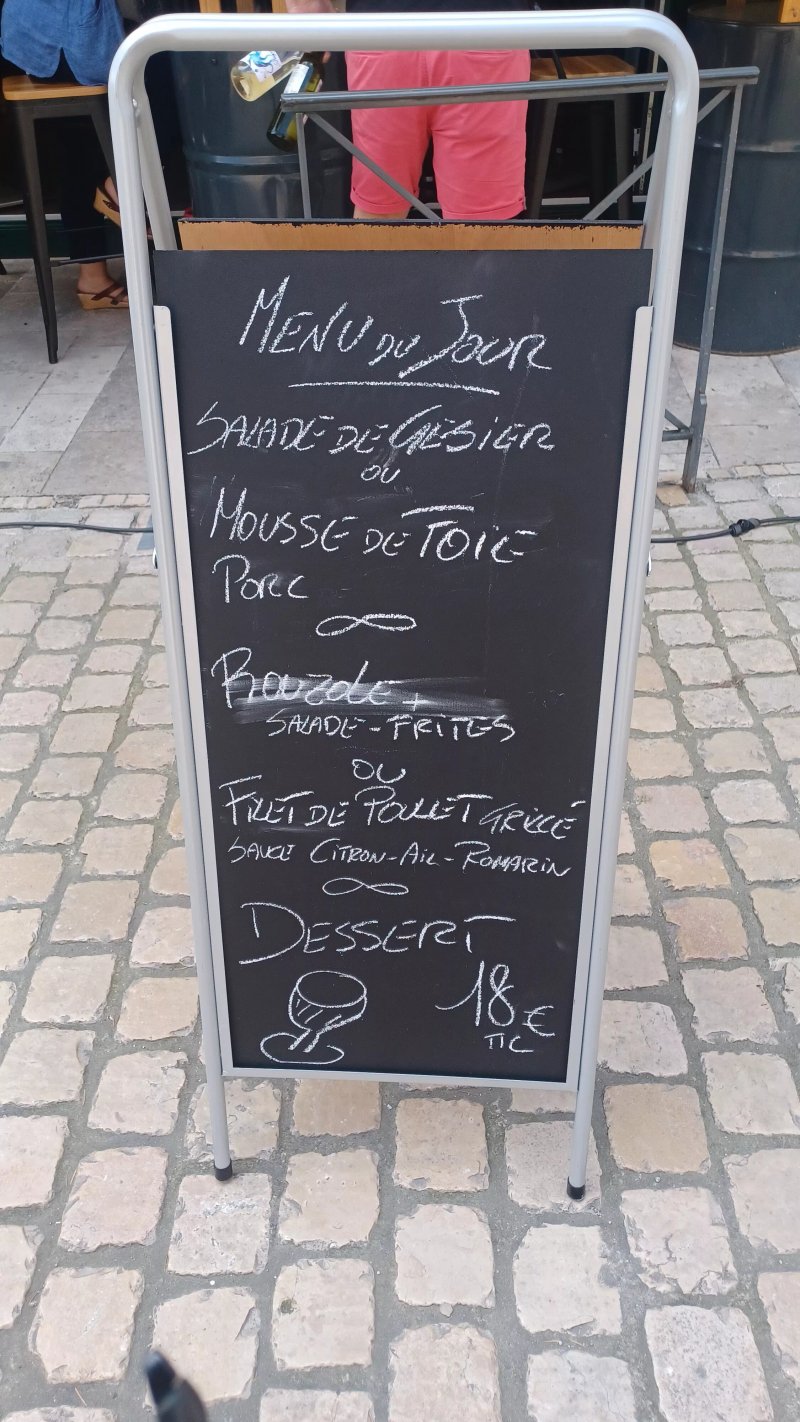 MENU DU JOUR
SALADE DE GÉSIER
OU
MOUSSE DE FOIE
PORC
ROUZOLE +
SALADE-FRITES
OU
FILET DE POULET GRILLÉ
SAUCE CITRON-AIL-ROMARIN
DESSERT
18€
TTC